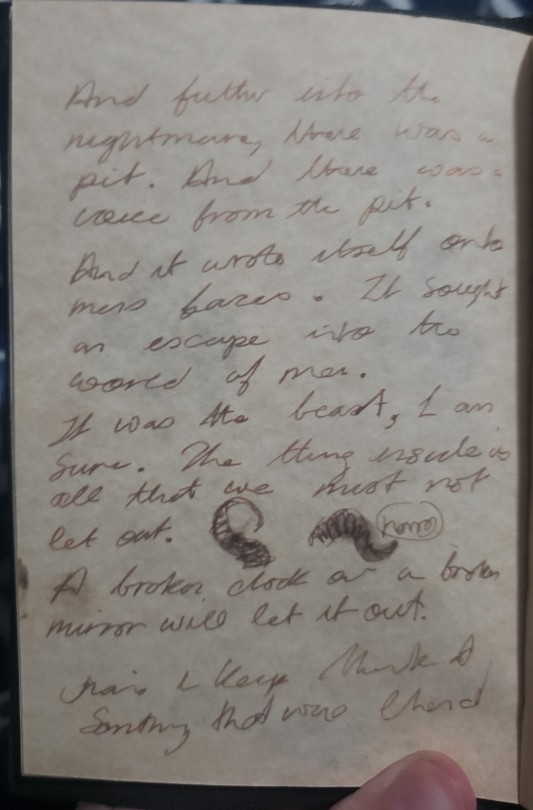 And futher into the
nightmare, there was a
pit. And there was a
voice from the pit.
And it wrote itself onto
mens faces. It sought
an escape into the
world of men.
It was the beast, I am
sure. The thing inside us
all that we must not
let out.
horror
A broken clock or a broken
mirror will let it out.
I keep think
that was